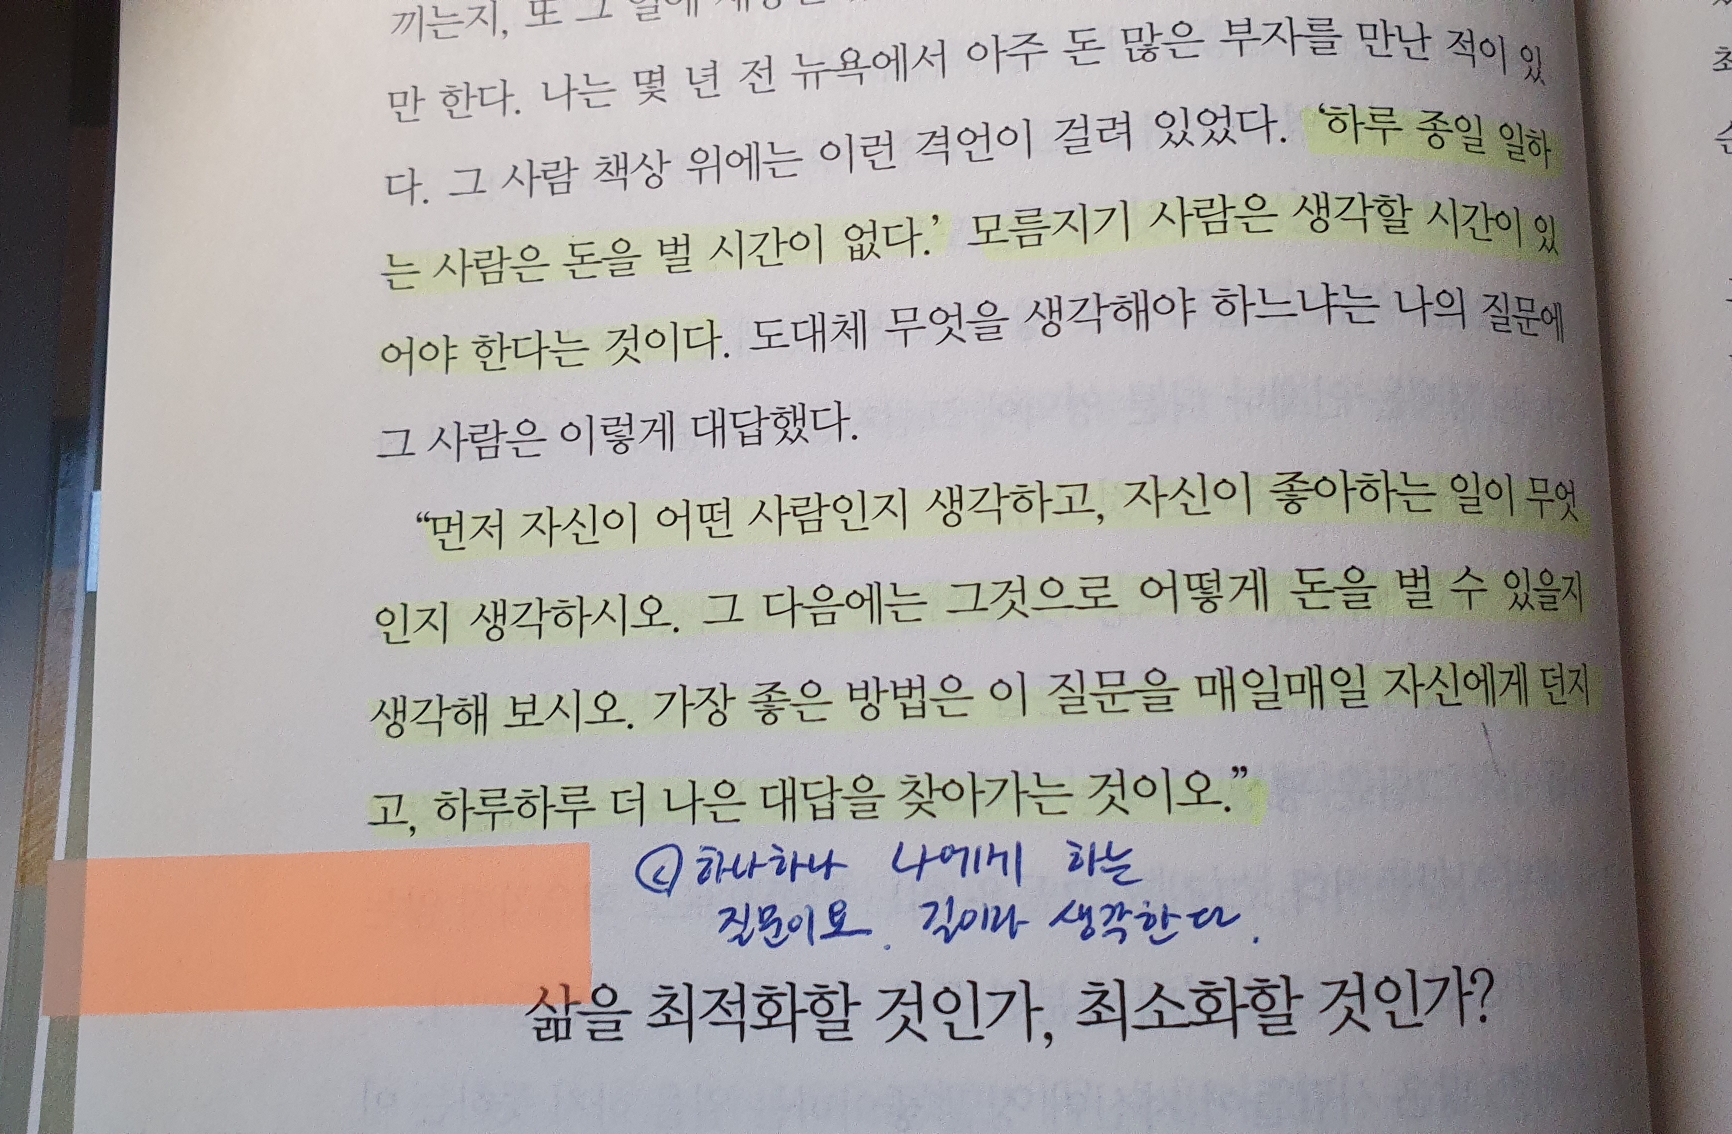 끼는지, 또 그 일에
만 한다. 나는 몇 년 전 뉴욕에서 아주 돈 많은 부자를 만난 적이 있
다. 그 사람 책상 위에는 이런 격언이 걸려 있었다. ‘하루 종일 일하
는 사람은 돈을 벌 시간이 없다.’ 모름지기 사람은 생각할 시간이 있
어야 한다는 것이다. 도대체 무엇을 생각해야 하느냐는 나의 질문에
그 사람은 이렇게 대답했다.
“먼저 자신이 어떤 사람인지 생각하고, 자신이 좋아하는 일이 무엇
인지 생각하시오. 그 다음에는 그것으로 어떻게 돈을 벌 수 있을지
생각해 보시오. 가장 좋은 방법은 이 질문을 매일매일 자신에게 던지
고, 하루하루 더 나은 대답을 찾아가는 것이오.”
하나하나 나에게 하는
질문이요. 길이라 생각한다.
삶을 최적화할 것인가, 최소화할 것인가?